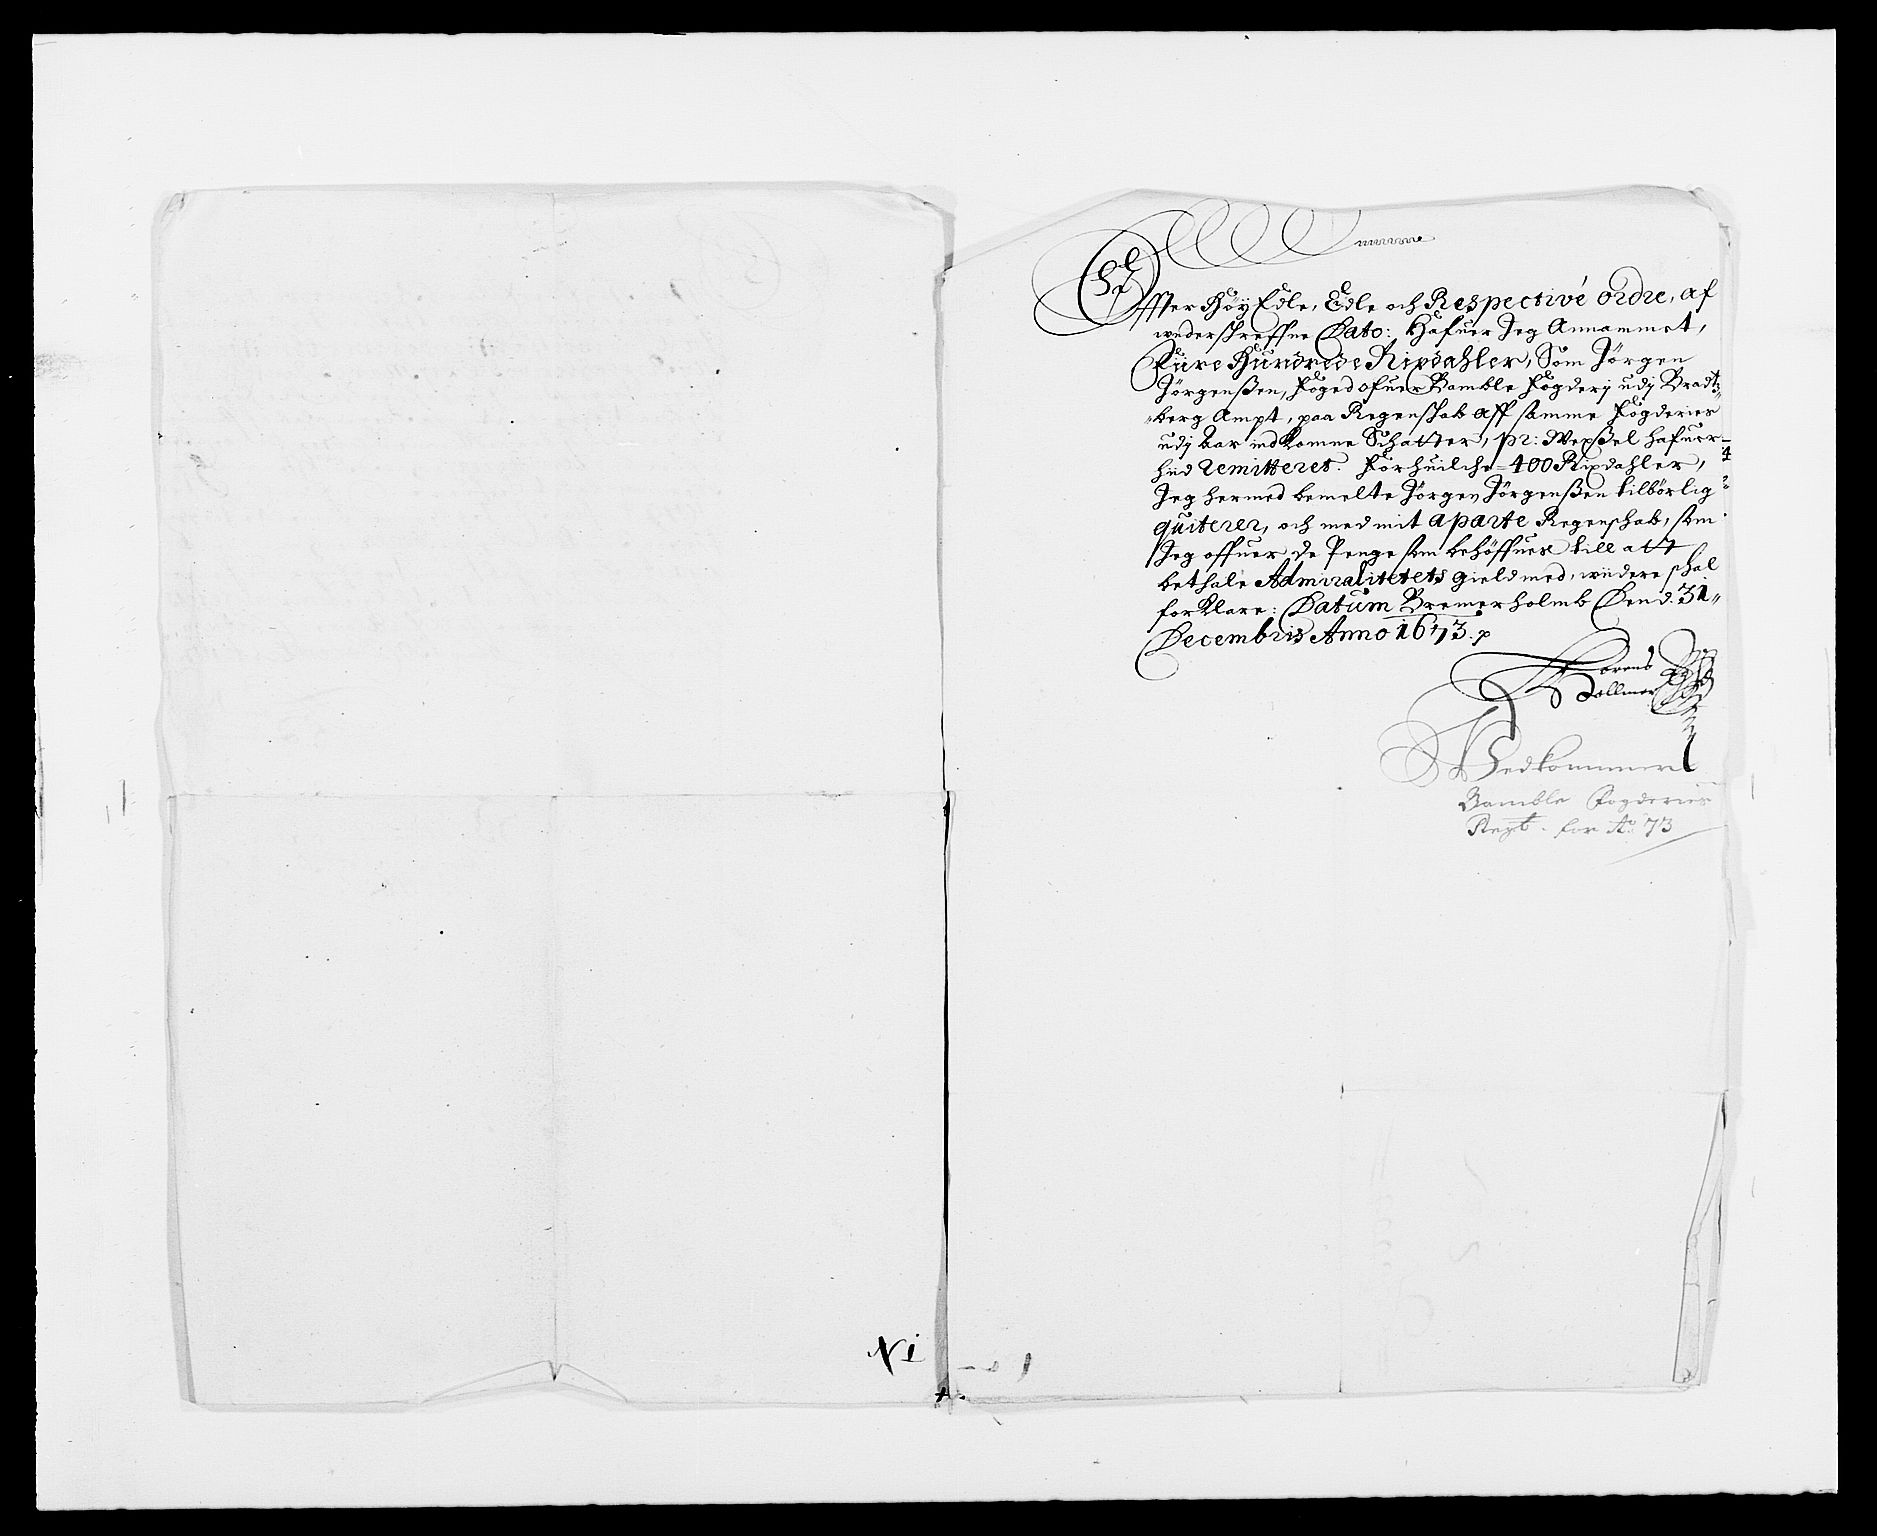 Effter Höy Edle, Edle och Respectivé ordre, af
underskreffne Dato: Hafuer Jeg Annammet,
Fiire Hundrede Rixdahler, Som Jörgen
Jörgenßen, Foged ofuer Bamble Fögderj udj Bradtz
berg Ampt, paa Regenskab aff samme Fögderies
udj bar indkomne Schatter, pr: Wexßel hafuer
hid remitteret. Forhuilche = 400 Rixdahler,
Jeg hermed bemelte Jörgen Jörgenßen tilbörlig
quiterer, och med mit aparte Regenschab, som
Jeg offuer de Penge som behöffues till att
bethale Admiralitetets gield med, widere schal
forklare: Datum Bremerholmb Den d. 31
Decembris Anno 1673.
Lorens
Vedkommer
Bamble Fogderies
Regt. for Ao 73